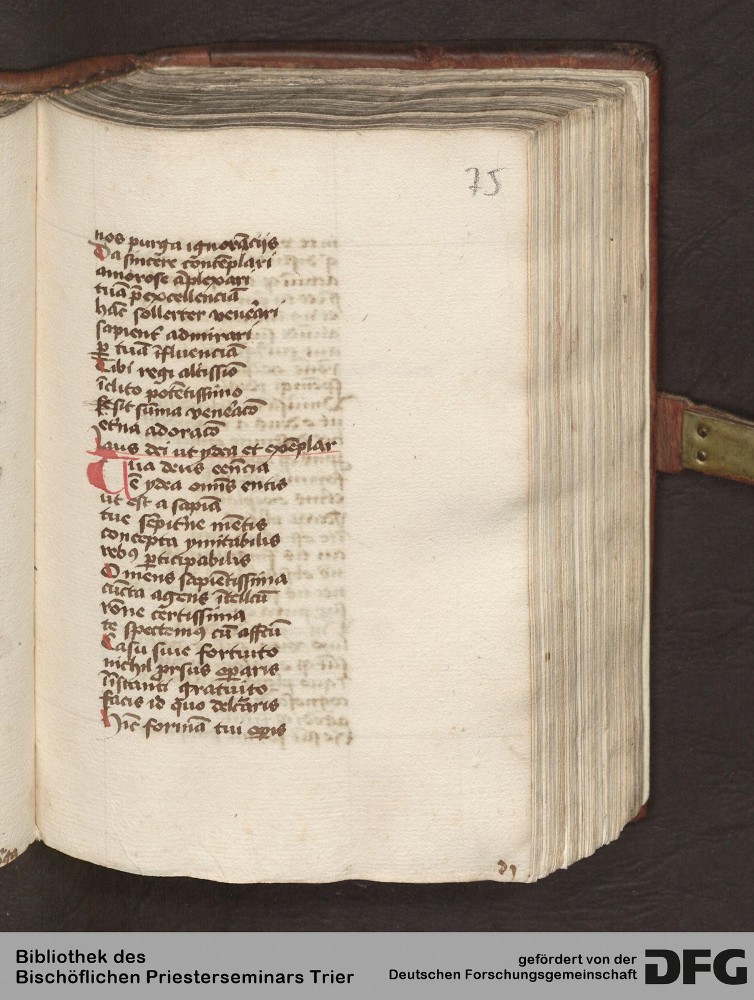 75
nos purga ignorācijs
Da sincere contēplari
amorose āplexari
tuā p̄excellenciā
hāc sollerter venerari
sapient̄ admirari
ꝑ tuā īfluenciā
Tibi regi altissīo
īclito potētissimo
sit sūma venerac̄o
et̄na adorac̄o
Laus dei ut ydea et exēplar
Qua deus eēncia
ē ydea omīs entis
ut est a sapiā
tue sēpit̄ne mētis
concepta ymitabilis
rebꝰ ꝑticipabilis
O mens sapiētissima
cūcta agens ītellcū
rōne certissima
te spectemꝰ cū affcū
Casu siue fortuito
nichil prsus oꝑaris
īstanti gratuito
facis id quo delctaris
Hīc formā tui oꝑis
Bibliothek des
Bischöflichen Priesterseminars Trier
gefördert von der
Deutschen Forschungsgemeinschaft
DFG